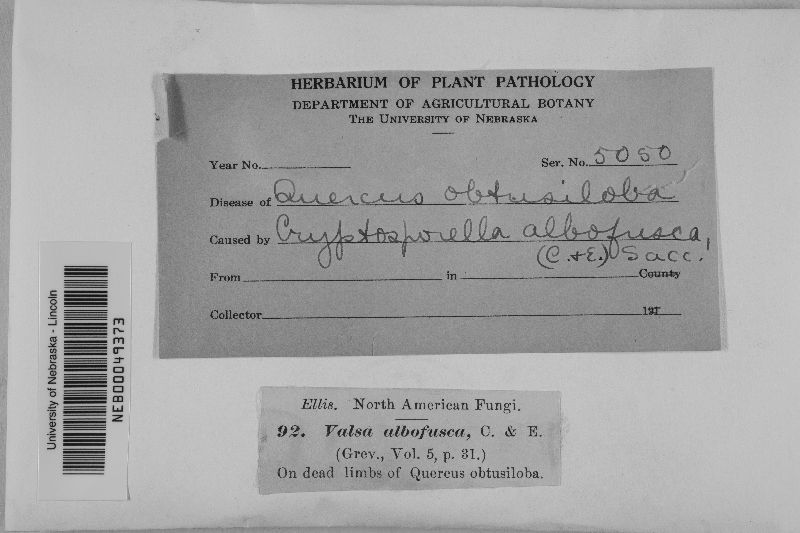 HERBARIUM OF PLANT PATHOLOGY
DEPARTMENT OF AGRICULTURAL BOTANY
THE UNIVERSITY OF NEBRASKA
Year No. Ser. No. 5050
Disease of Quercus obtusiloba
Caused by Cryptosporella albofusca,
(C. & E.) Sacc.
From in County
Collector 191
University of Nebraska - Lincoln
NEB00049373
Ellis. North American Fungi.
92. Valsa albofusca, C. & E.
(Grev., Vol. 5, p. 31.)
On dead limbs of Quercus obtusiloba.